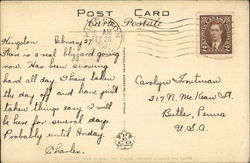 POST CARD
Carte Postale
AM
Kingston February 27
This is a real blizzard going
now. Has been snowing
hard all day. I have taken
the day off and have just
taken things easy. I will
be here for several days.
Probably until Friday.
Charles.
2 2
Carolyn Troutman
317 N. McKean St.
Butler, Penna
U.S.A.